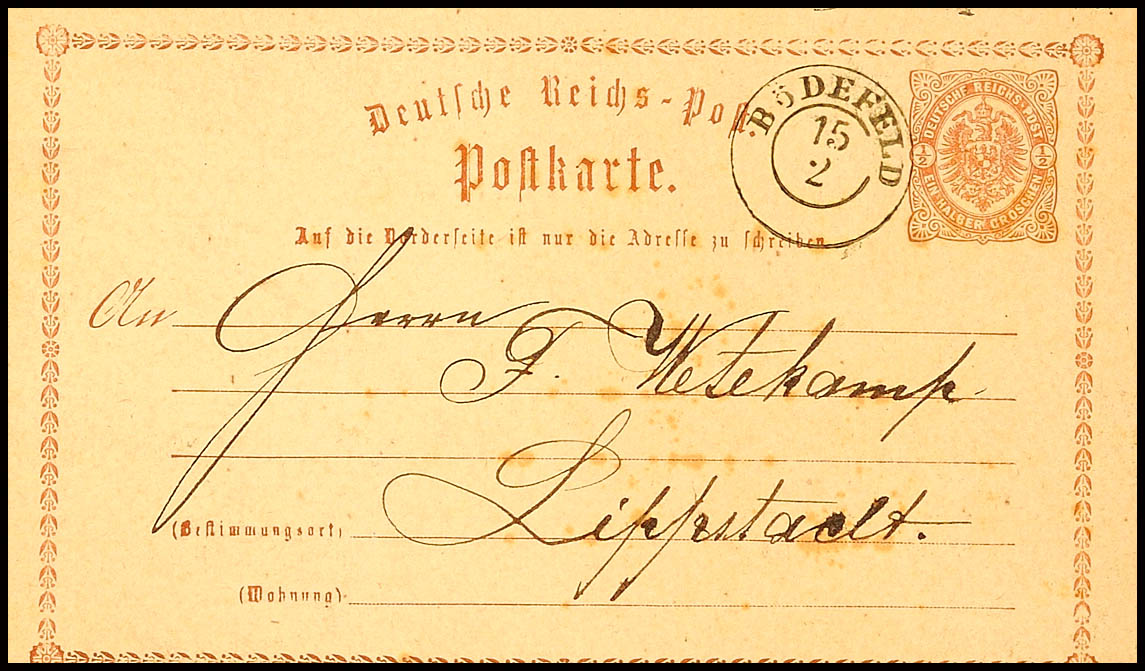 Deutsche Reichs-Post.
Postkarte.
BÖDEFELD
15
2
DEUTSCHE REICHS-POST
1/2 1/2
EIN HALBER GROSCHEN
Auf die Vorderseite ist nur die Adresse zu schreiben
An Herrn
F. Wetekamp
Lippstadt.
(Bestimmungsort)
(Wohnung)